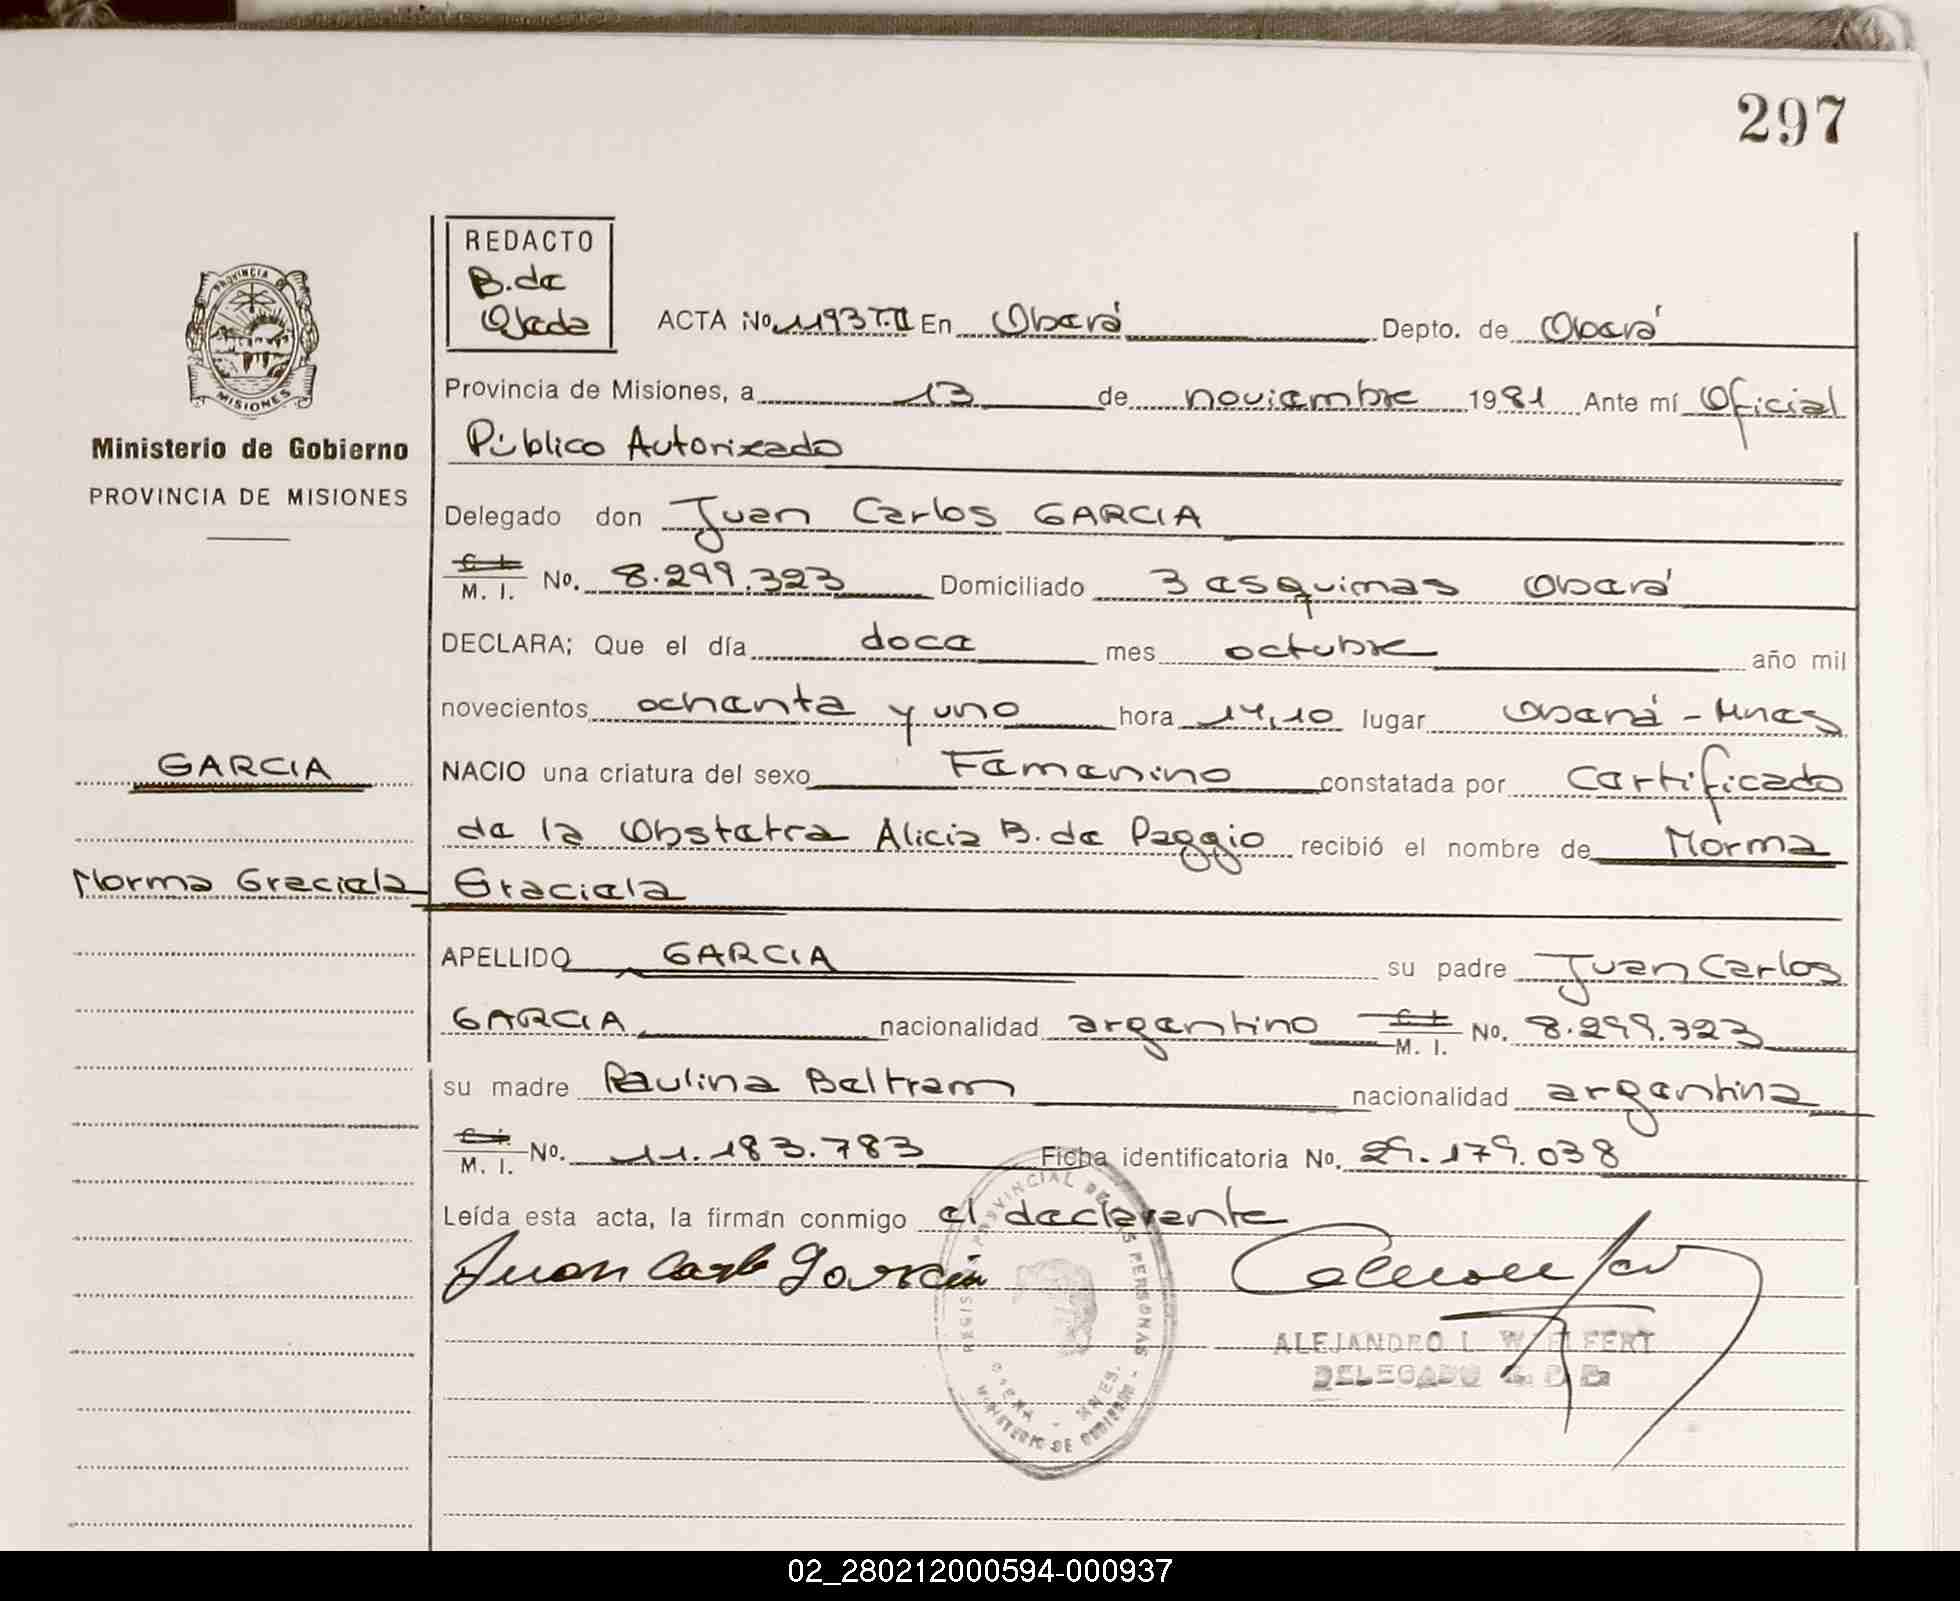 297
REDACTO
B. de
Ojeda
PROVINCIA DE
MISIONES
ACTA No. 1193 T.II En Oberá Depto. de Oberá
Provincia de Misiones, a 13 de noviembre 1981 Ante mí Oficial
Ministerio de Gobierno
Público Autorizado
PROVINCIA DE MISIONES
Delegado don Juan Carlos GARCIA
C. I. M. I. No. 8.299.323 Domiciliado 3 esquinas Oberá
DECLARA; Que el día doce mes octubre año mil
novecientos ochenta y uno hora 14,10 lugar Oberá - Mnes
GARCIA
NACIO una criatura del sexo Femenino constatada por certificado
de la Obstetra Alicia B. de Paggio recibió el nombre de Norma
Norma Graciela
Graciela
APELLIDO GARCIA su padre Juan Carlos
GARCIA nacionalidad argentino C. I. M. I. No. 8.299.323
su madre Paulina Beltram nacionalidad argentina
C. I. M. I. No. 11.183.783 Ficha identificatoria No. 29.179.038
Leída esta acta, la firman conmigo el declarante
Juan Carlos Garcia
REGISTRO PROVINCIAL DE LAS PERSONAS
OBERA - MNES.
MINISTERIO DE GOBIERNO
ALEJANDRO L.
DELEGADO
02_280212000594-000937